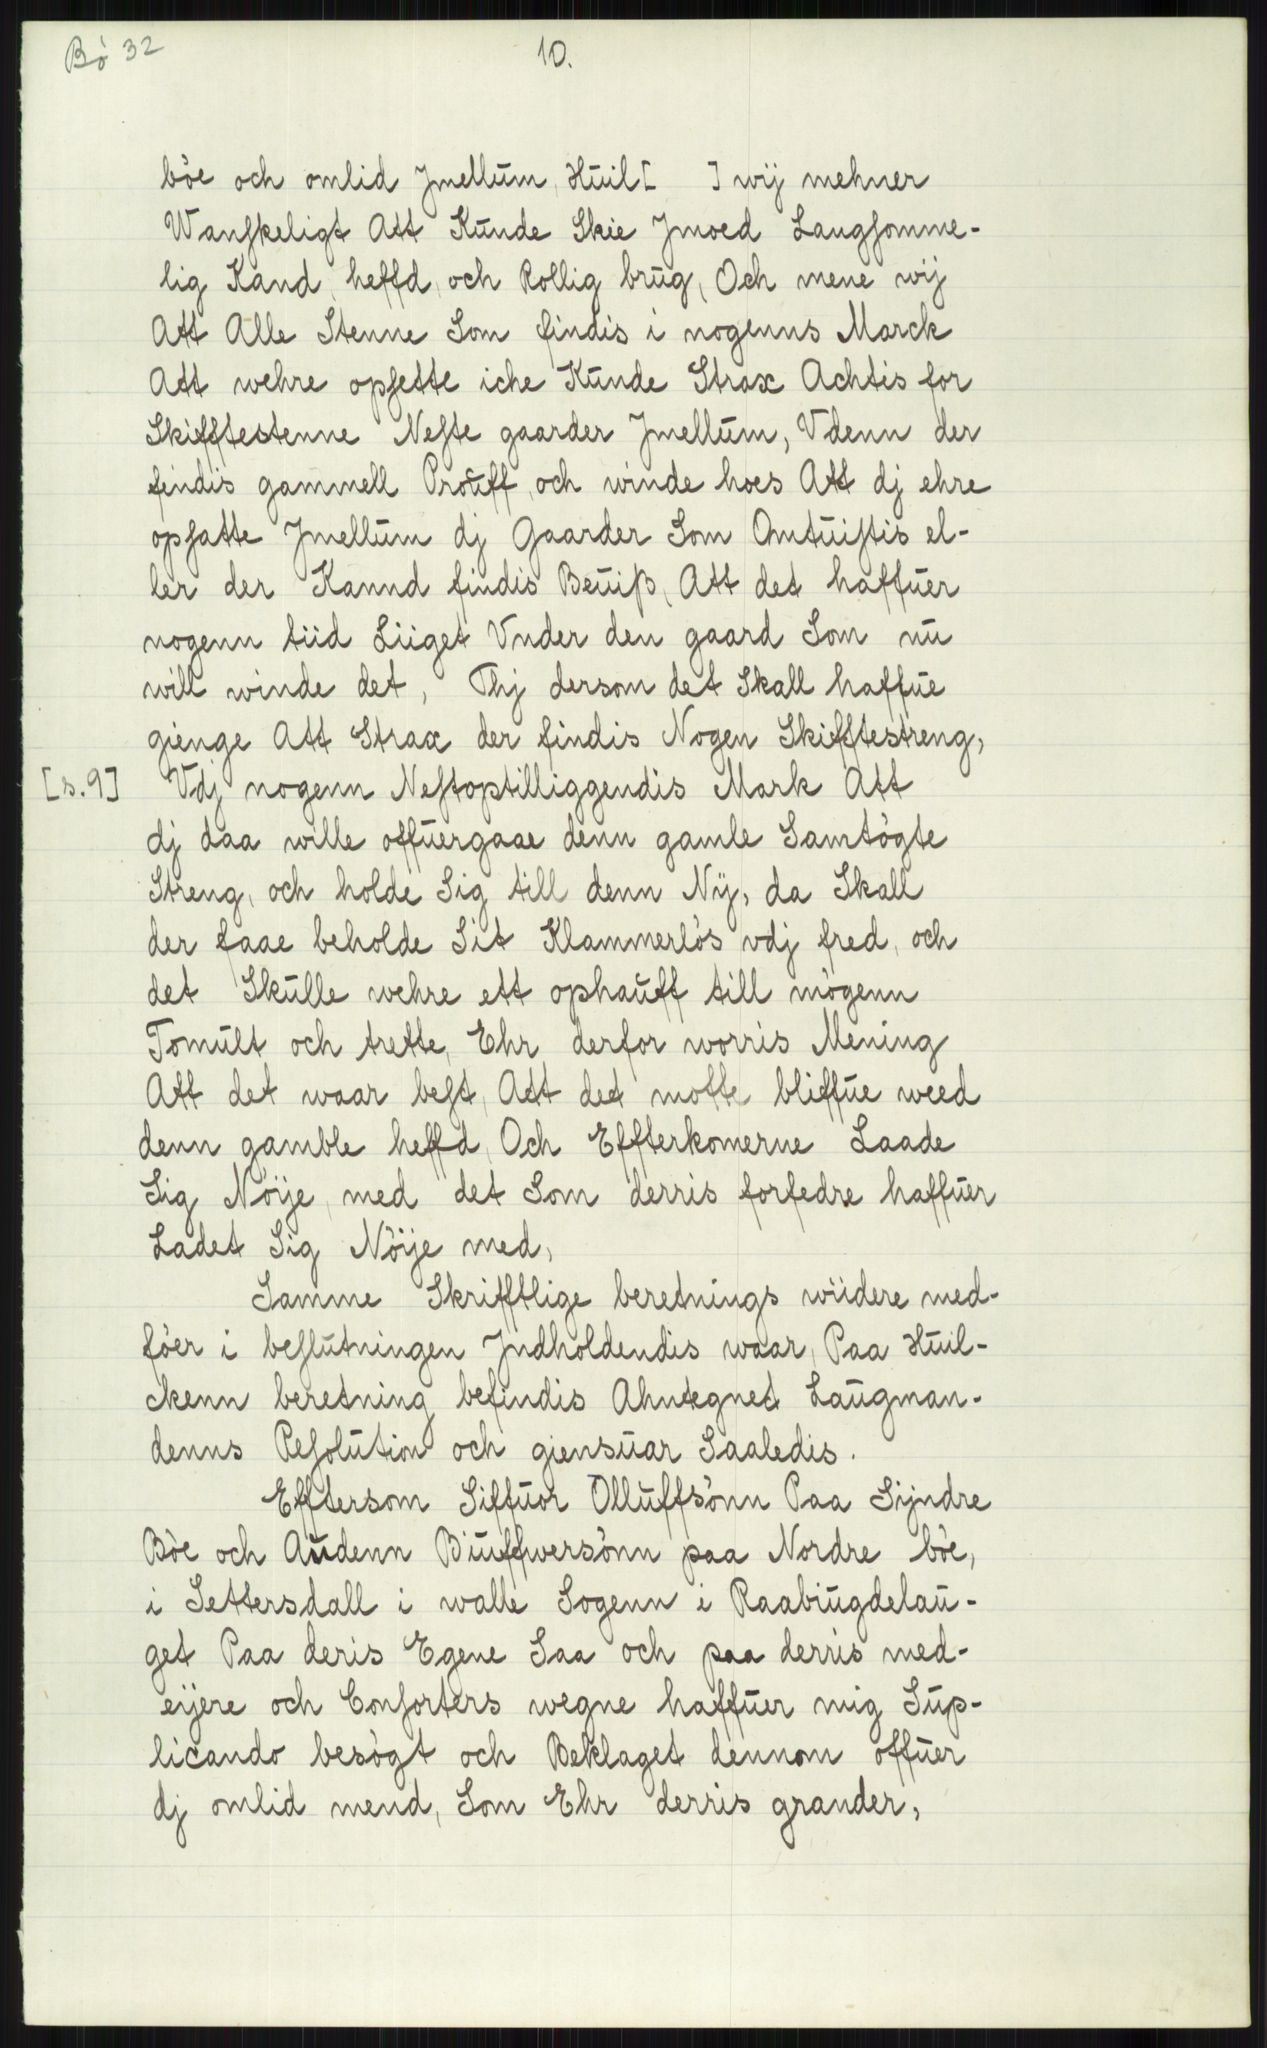 Bö 32
10.
böe och omlid Jmellum, Huil[ ] wij mehner
Wanskeligt Att Kunde Skie Jmoed Langsomme-
lig Kand, heffd, och Rollig brug, Och mene wij
Att Alle Stenne Som findis i nogenns Marck
Att wehre opsette iche Kunde Strax Achtis for
Skifftestenne Neste gaarder Jmellum, Vdenn der
findis gammell Prouff, och winde hoes Att dj ehre
opsatte Jmellum dj Gaarder Som Omtuistis el-
ler der Kannd findis Beuiß, Att det haffuer
nogenn tiid Liiget Vnder den gaard Som nu
will winde det, Thj dersom det Skall haffue
gienge Att Strax der findis Nogen Skifftestreng,
[s.9] Vdj nogenn Nestoptilliggendis Mark Att
dj daa wille offuergaae denn gamle Samtögte
Streng, och holde Sig till denn Nÿ, da Skall
der faae beholde Sit Klammerlös vdj fred, och
det Skulle wehre ett ophauff till mögenn
Tomult och trette, Ehr derfor worris Mening
Att det waar best, Att det motte bliffue weed
denn gamble heffd, Och Effterkomerne Laade
Sig Nöije, med det Som derris forfedre haffuer
Ladet Sig Nöije med,
Samme Skrifftlige beretnings wiidere med-
föer i beslutningen Jndholdendis waar, Paa Huil-
ckenn beretning befindis Ahntegnet Laugman-
denns Resolution och giensuar Saaledis.
Efftersom Siffuor Olluffsönn Paa Sijndre
Böe och Audenn Biuffwersönn paa Nordre böe,
i Settersdall i walle Sogenn i Raabiugdelau-
get Paa deris Egene Saa och paa derris med-
eijere och Consorters wegne haffuer mig Sup-
licando besögt och Beklaget dennom offuer
dj omlid mend, Som Ehr derris grander,